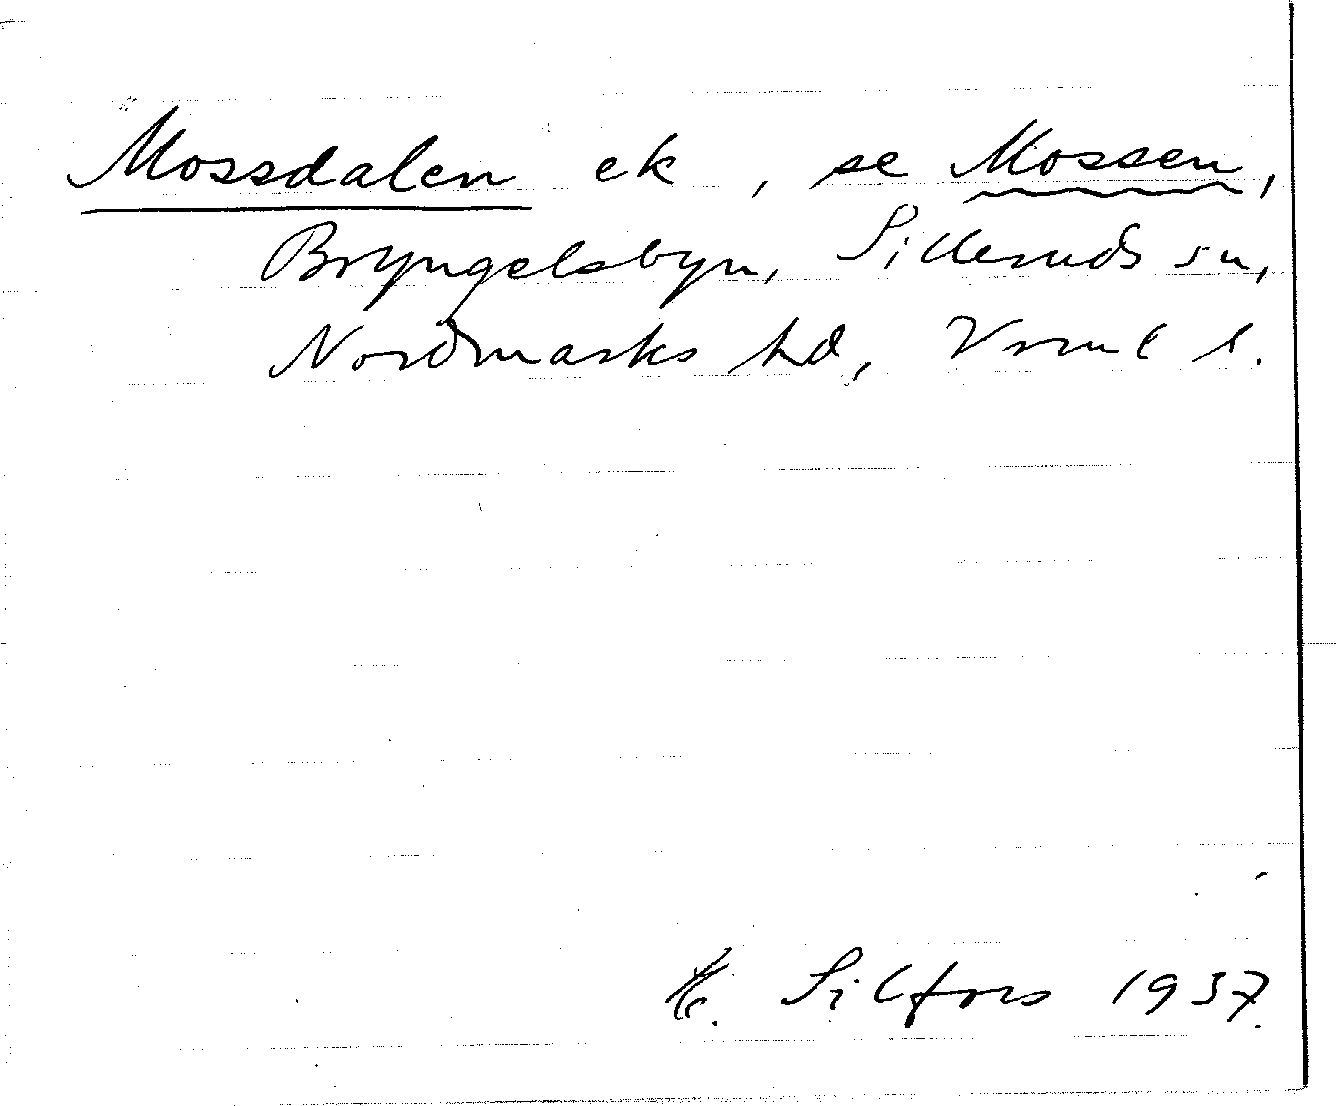 Mossdalen ek, se Mossen,
Bryngelsbyn, Silleruds sn,
Nordmarks hd, Vrml l.
H. Silfors 1937.